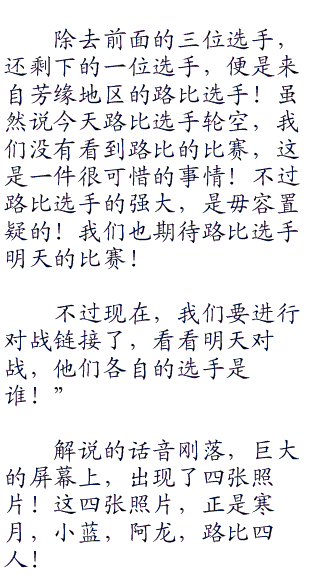 除去前面的三位选手，
还剩下的一位选手，便是来
自芳缘地区的路比选手！虽
然说今天路比选手轮空，我
们没有看到路比的比赛，这
是一件很可惜的事情！不过
路比选手的强大，是毋容置
疑的！我们也期待路比选手
明天的比赛！
不过现在，我们要进行
对战链接了，看看明天对
战，他们各自的选手是
谁！”
解说的话音刚落，巨大
的屏幕上，出现了四张照
片！这四张照片，正是寒
月，小蓝，阿龙，路比四
人！